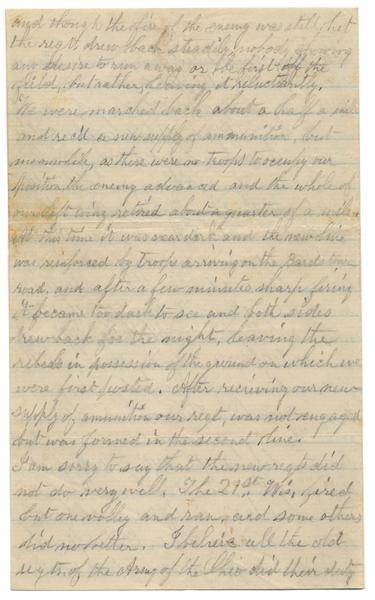 and though the fire of the enemy was still hot
the regts drew back steadily nobody showing
any desire to run away or be first off the
field, but rather leaving it reluctantly.
We were marched back about a half a mile
and rec'd a new supply of ammunition, but
meanwhile, as there were no troops to occupy our
position the enemy advanced and the whole of
our left wing retired about a quarter of a mile.
At this time it was near dark and the new line
was reinforced by troops arriving on the Bardstown
road, and after a few minutes sharp firing
it became too dark to see and both sides
drew back for the night, leaving the
rebels in possession of the ground on which we
were first posted. After recieving our new
supply of amunition our regt. was not engaged
but was formed in the second line.
I am sorry to say that the new regts did
not do very well. The 21st Wis. fired
but one volley and ran, and some others
did no better. I believe all the old
regts of the Army of the Ohio did their duty